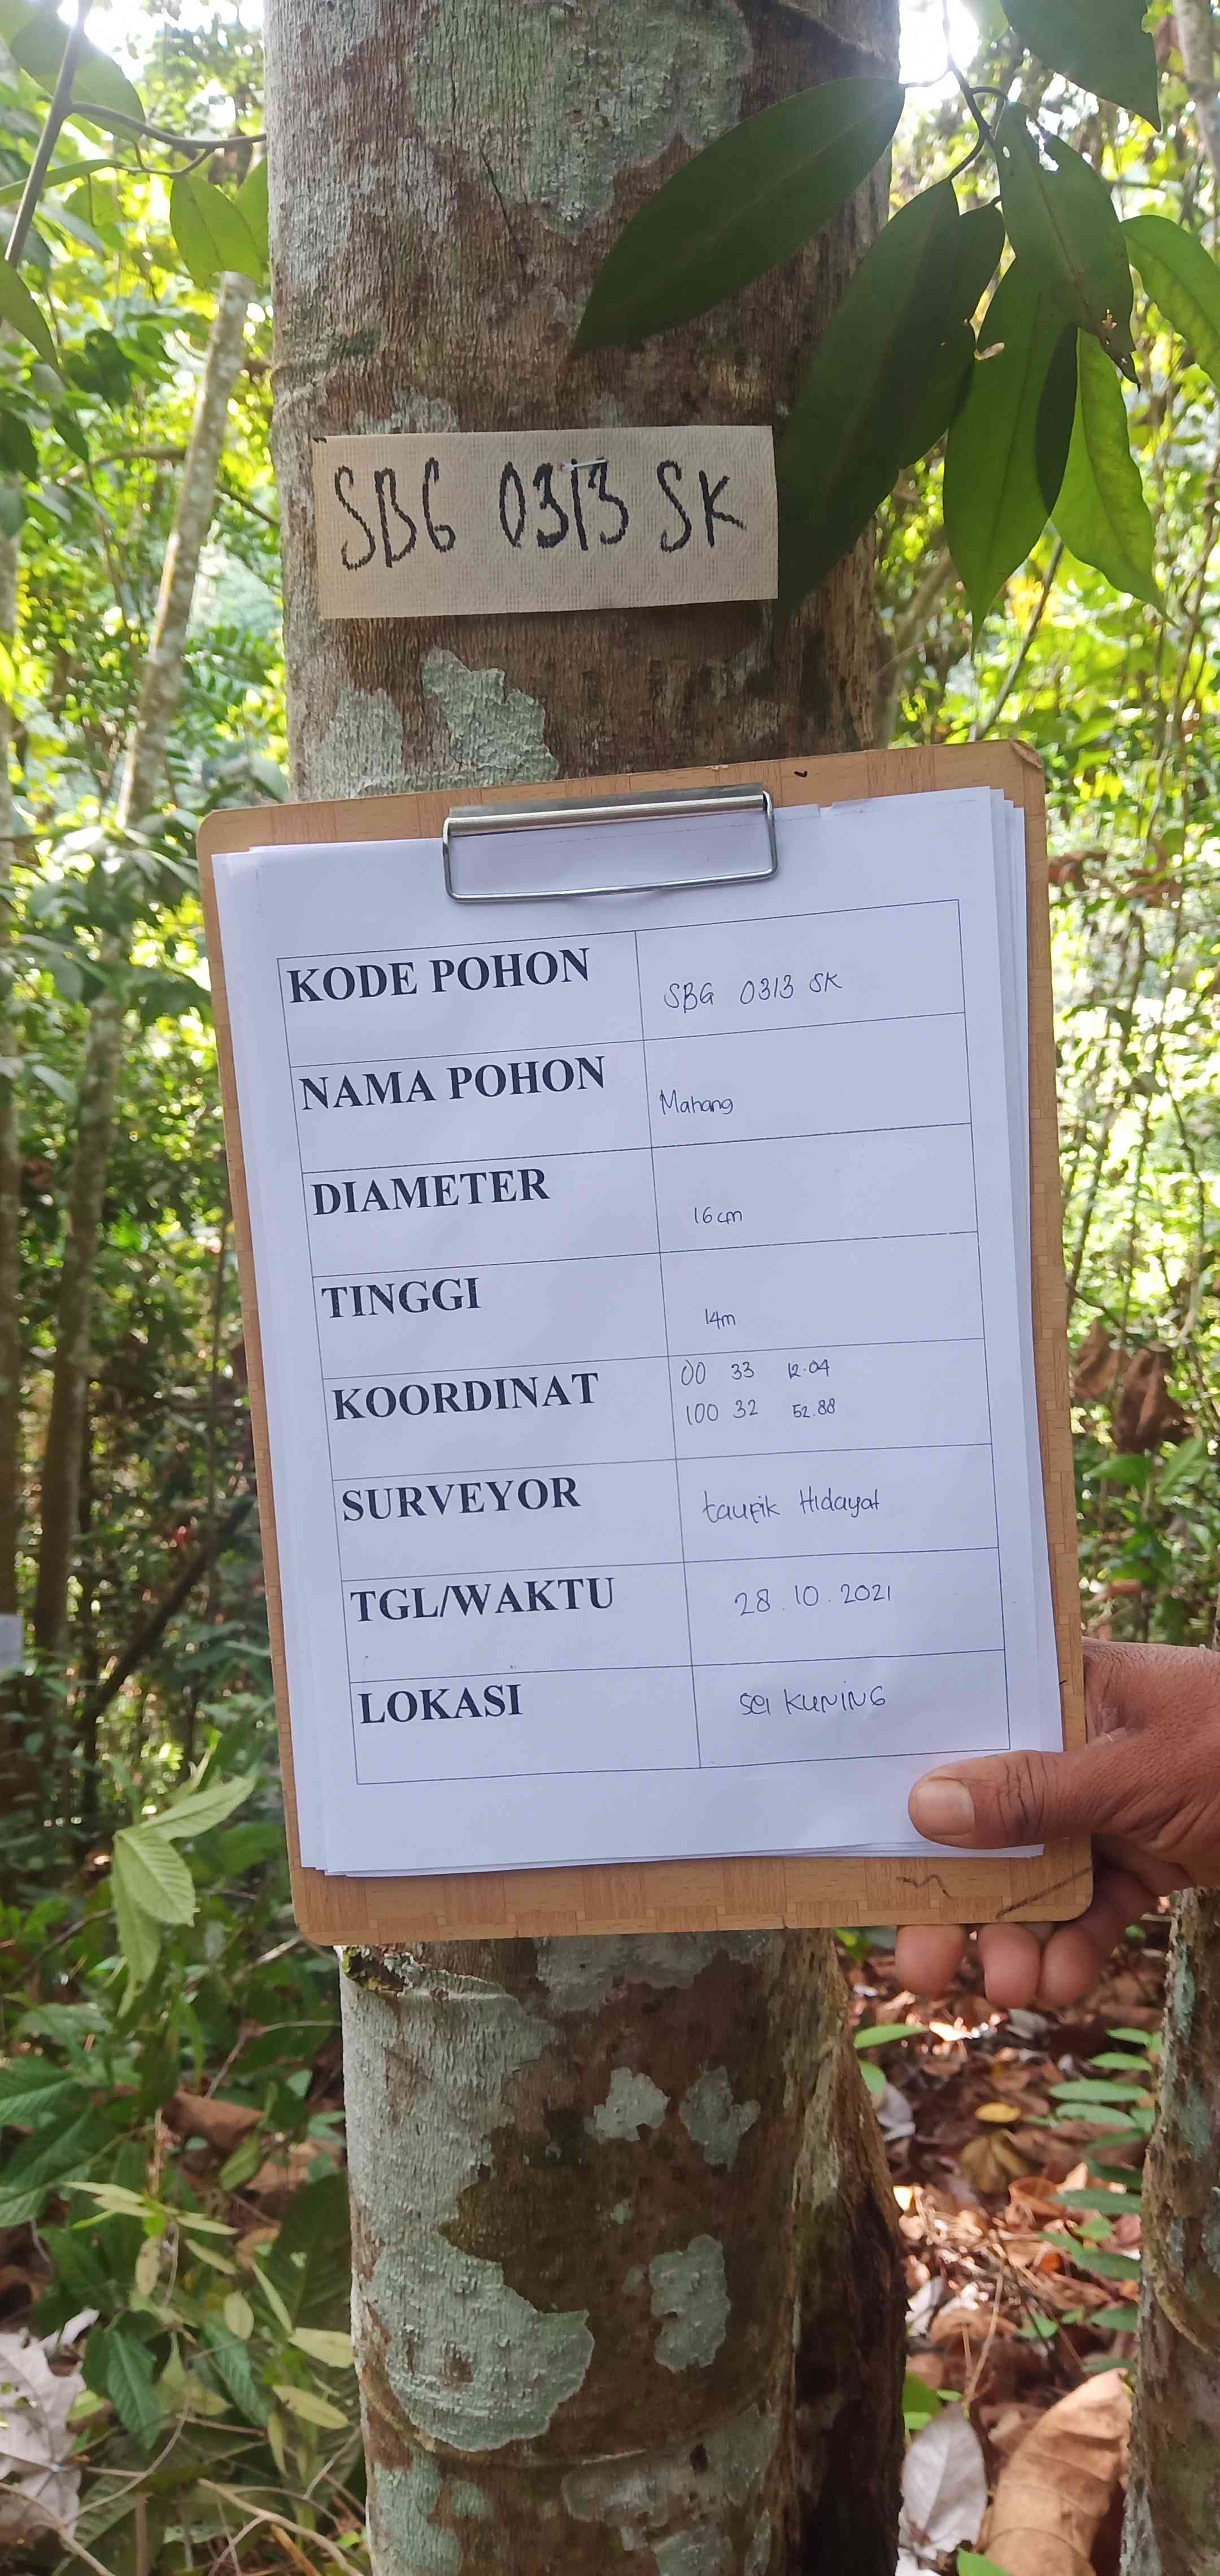 SBG 0313 SK
KODE POHON SBG 0313 SK
NAMA POHON Mahang
DIAMETER 16 cm
TINGGI 14m
KOORDINAT 00 33 12.04
100 32 52.88
SURVEYOR taufik Hidayat
TGL/WAKTU 28.10.2021
LOKASI sei KUNiNG